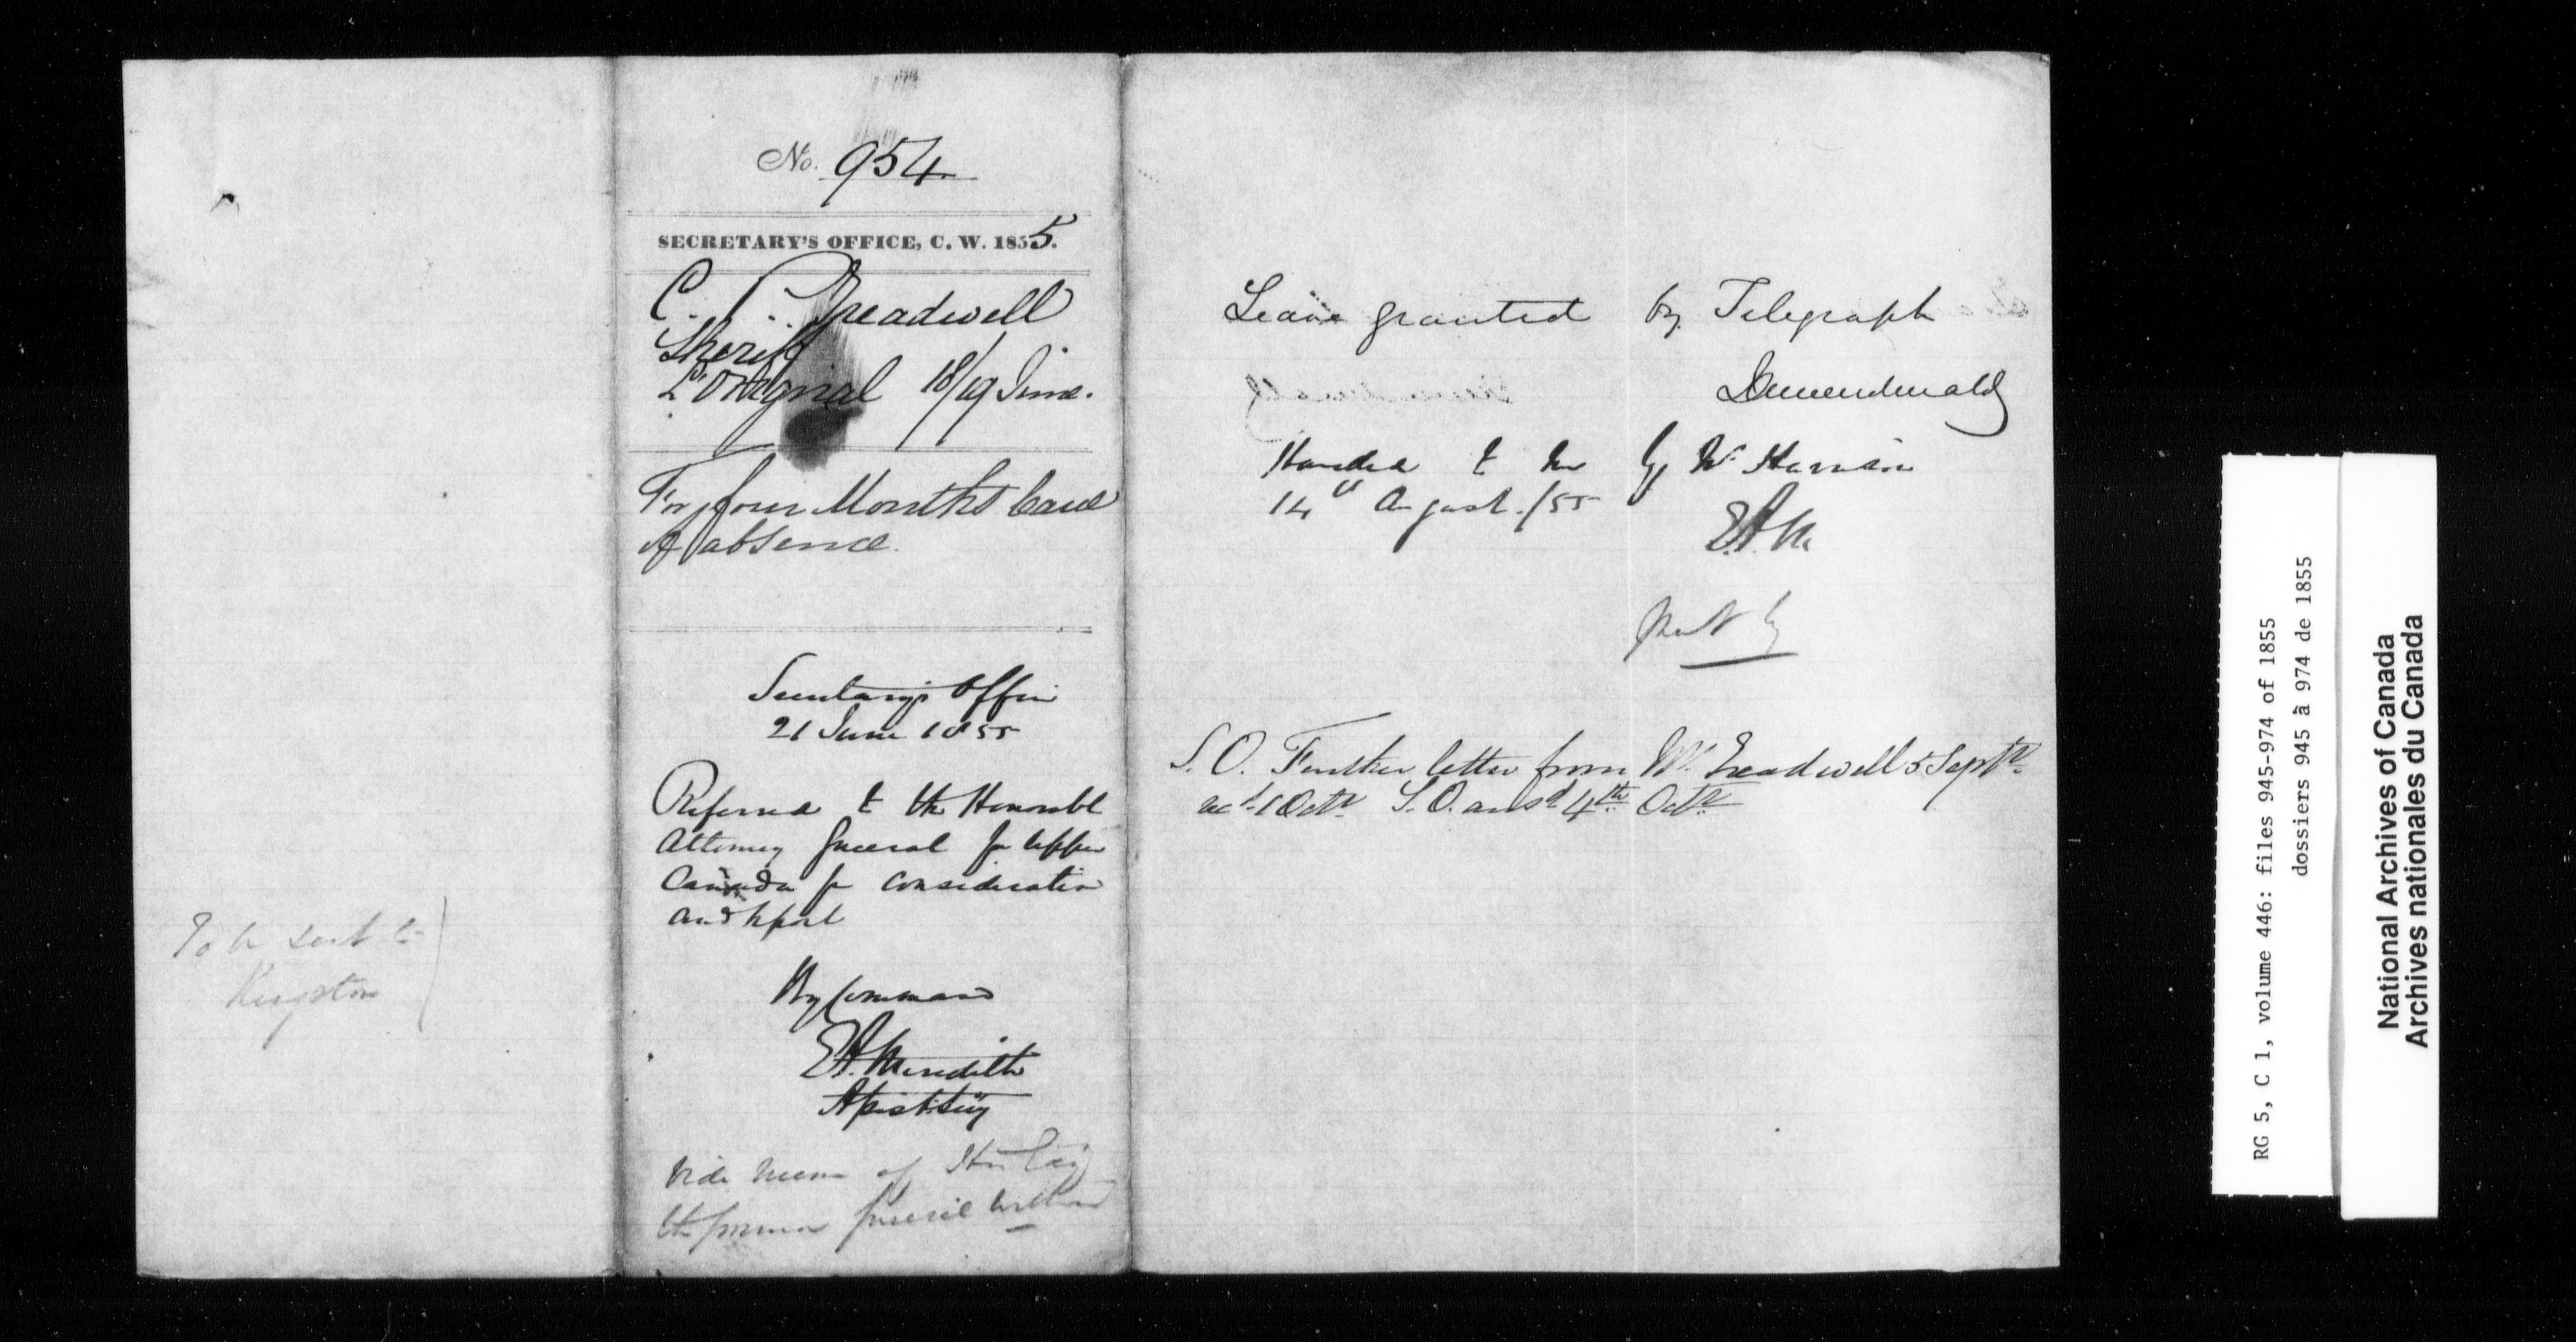 To be sent to
Kingston
No. 954
SECRETARY'S OFFICE, C. W. 1855.
C. P. Treadwell
Sheriff
L'Orignal 18/19 June.
For four Months leave
of absence.
Secretary's Office
21 June 1855
Referred to the Honorable
Attorney General for Upper
Canada for consideration
and report
By Command
E A. Meredith
Asst Secy
Vide memo of His Excy
the Governor General within
Leave granted by Telegraph
Handed to me by Mr
14th August /55
E.A.M.
S. O. Further letter from Mr. Treadwell 5 Septr.
recd. 1 Octr. S. O. ansd 4th Octr.
RG 5, C 1, volume 446: files 945-974 of 1855
dossiers 945 à 974 de 1855
National Archives of Canada
Archives nationales du Canada